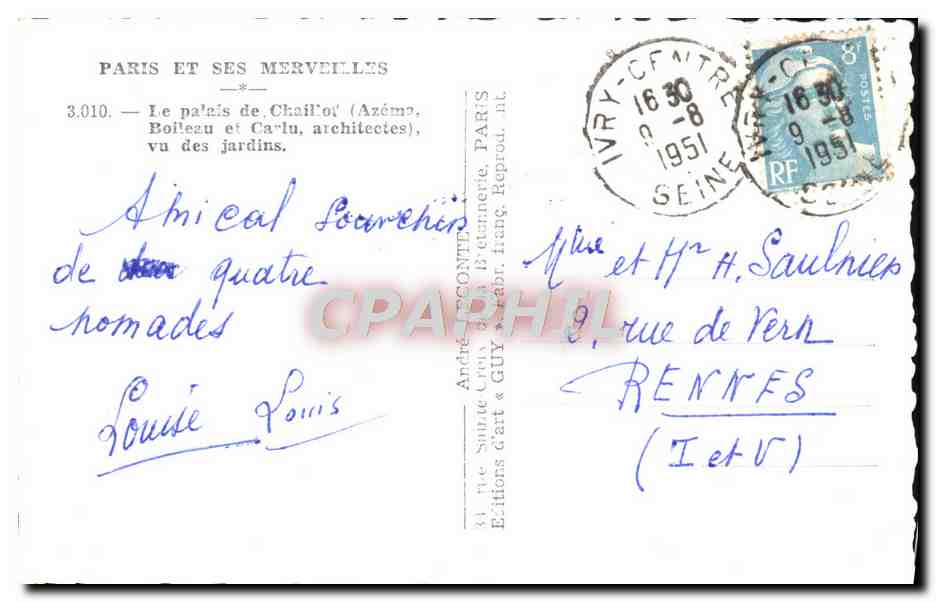 PARIS ET SES MERVEILLES
—*—
3.010. — Le palais de Chaillot (Azéma,
Boileau et Carlu, architectes),
vu des jardins.
Amical souvenir
de quatre
nomades
Louise Louis
André LECONTE
31 rue Sainte-Croix de la Bretonnerie, PARIS
Editions d'art « GUY » Fabr. franç. Reprod. int.
IVRY-CENTRE
16 30
9 -8
1951
SEINE
8F
POSTES
RF
IVRY-CE
16 30
9 -8
1951
SEINE
Mme et Mr H. Saulnier
2, rue de Vern
RENNES
(I et V)
CPAPHIL